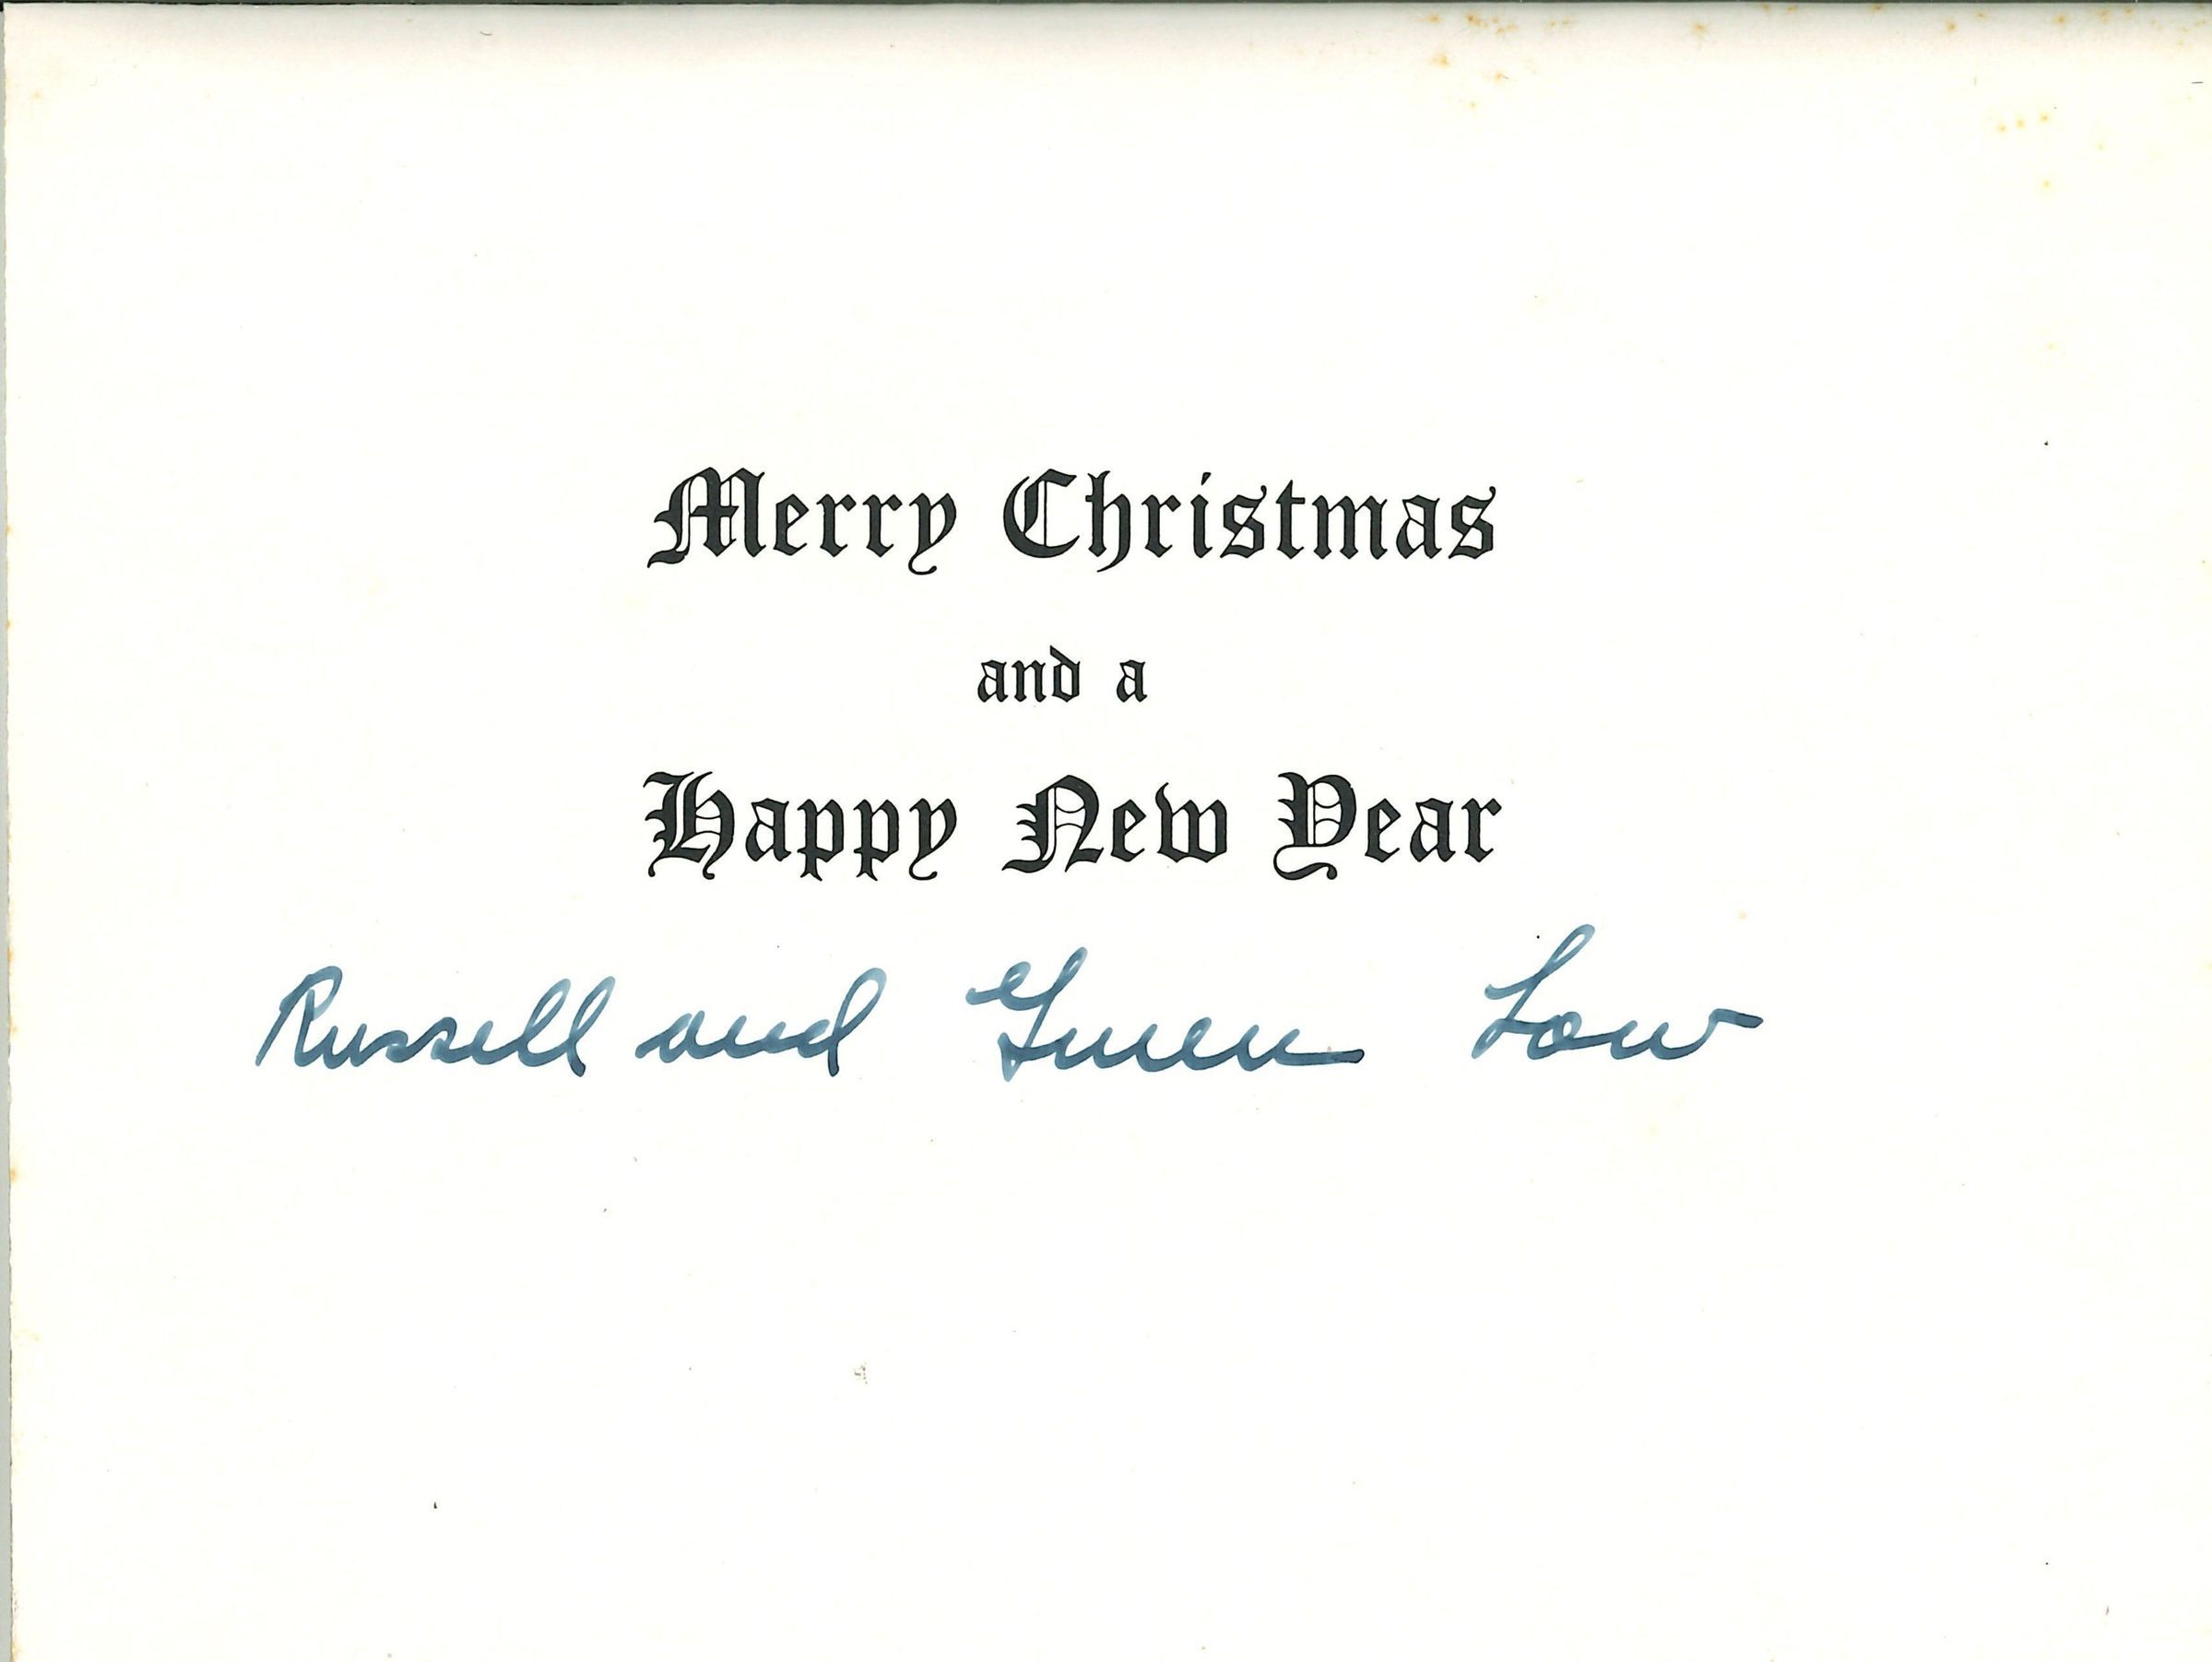 Merry Christmas
and a
Happy New Year
Russell and Gwen Low